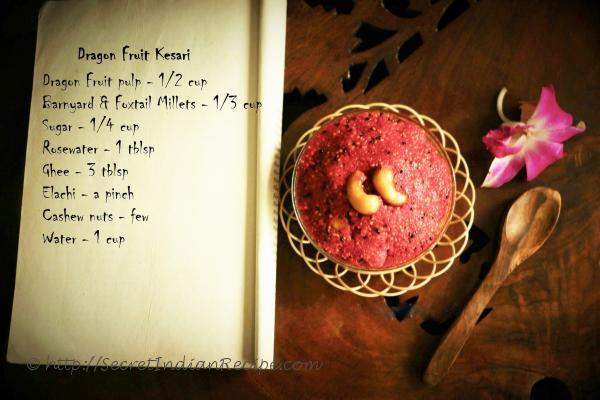 Dragon Fruit Kesari
Dragon Fruit pulp - 1/2 cup
Barnyard & Foxtail Millets - 1/3 cup
Sugar - 1/4 cup
Rosewater - 1 tblsp
Ghee - 3 tblsp
Elachi - a pinch
Cashew nuts - few
Water - 1 cup
© http://SecretIndianRecipe.com